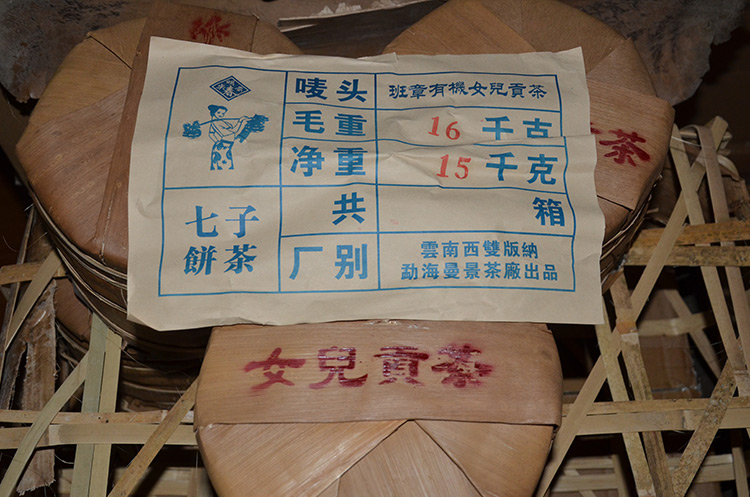 唛头 班章有機女兒貢茶
毛重 16 千古
净重 15 千克
共 箱
七子
餅茶
厂别 雲南西雙版納
勐海曼景茶廠出品
女兒貢茶
茶